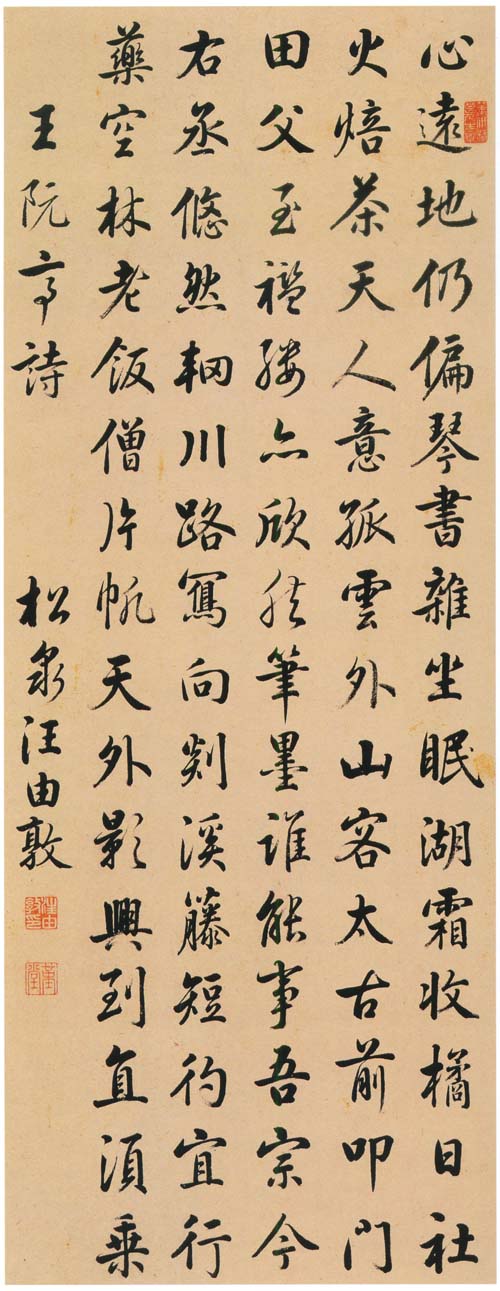 心遠地仍偏琴書雜坐眠湖霜收橘日社
火焙茶天人意孤雲外山容太古前叩門
田父至襤縷亦欣然筆墨誰能事吾宗今
右丞悠然輞川路寫向剡溪藤短彴宜行
藥空林老飯僧片帆天外影興到直須乘
王阮亭詩 松泉汪由敦
汪由敦印